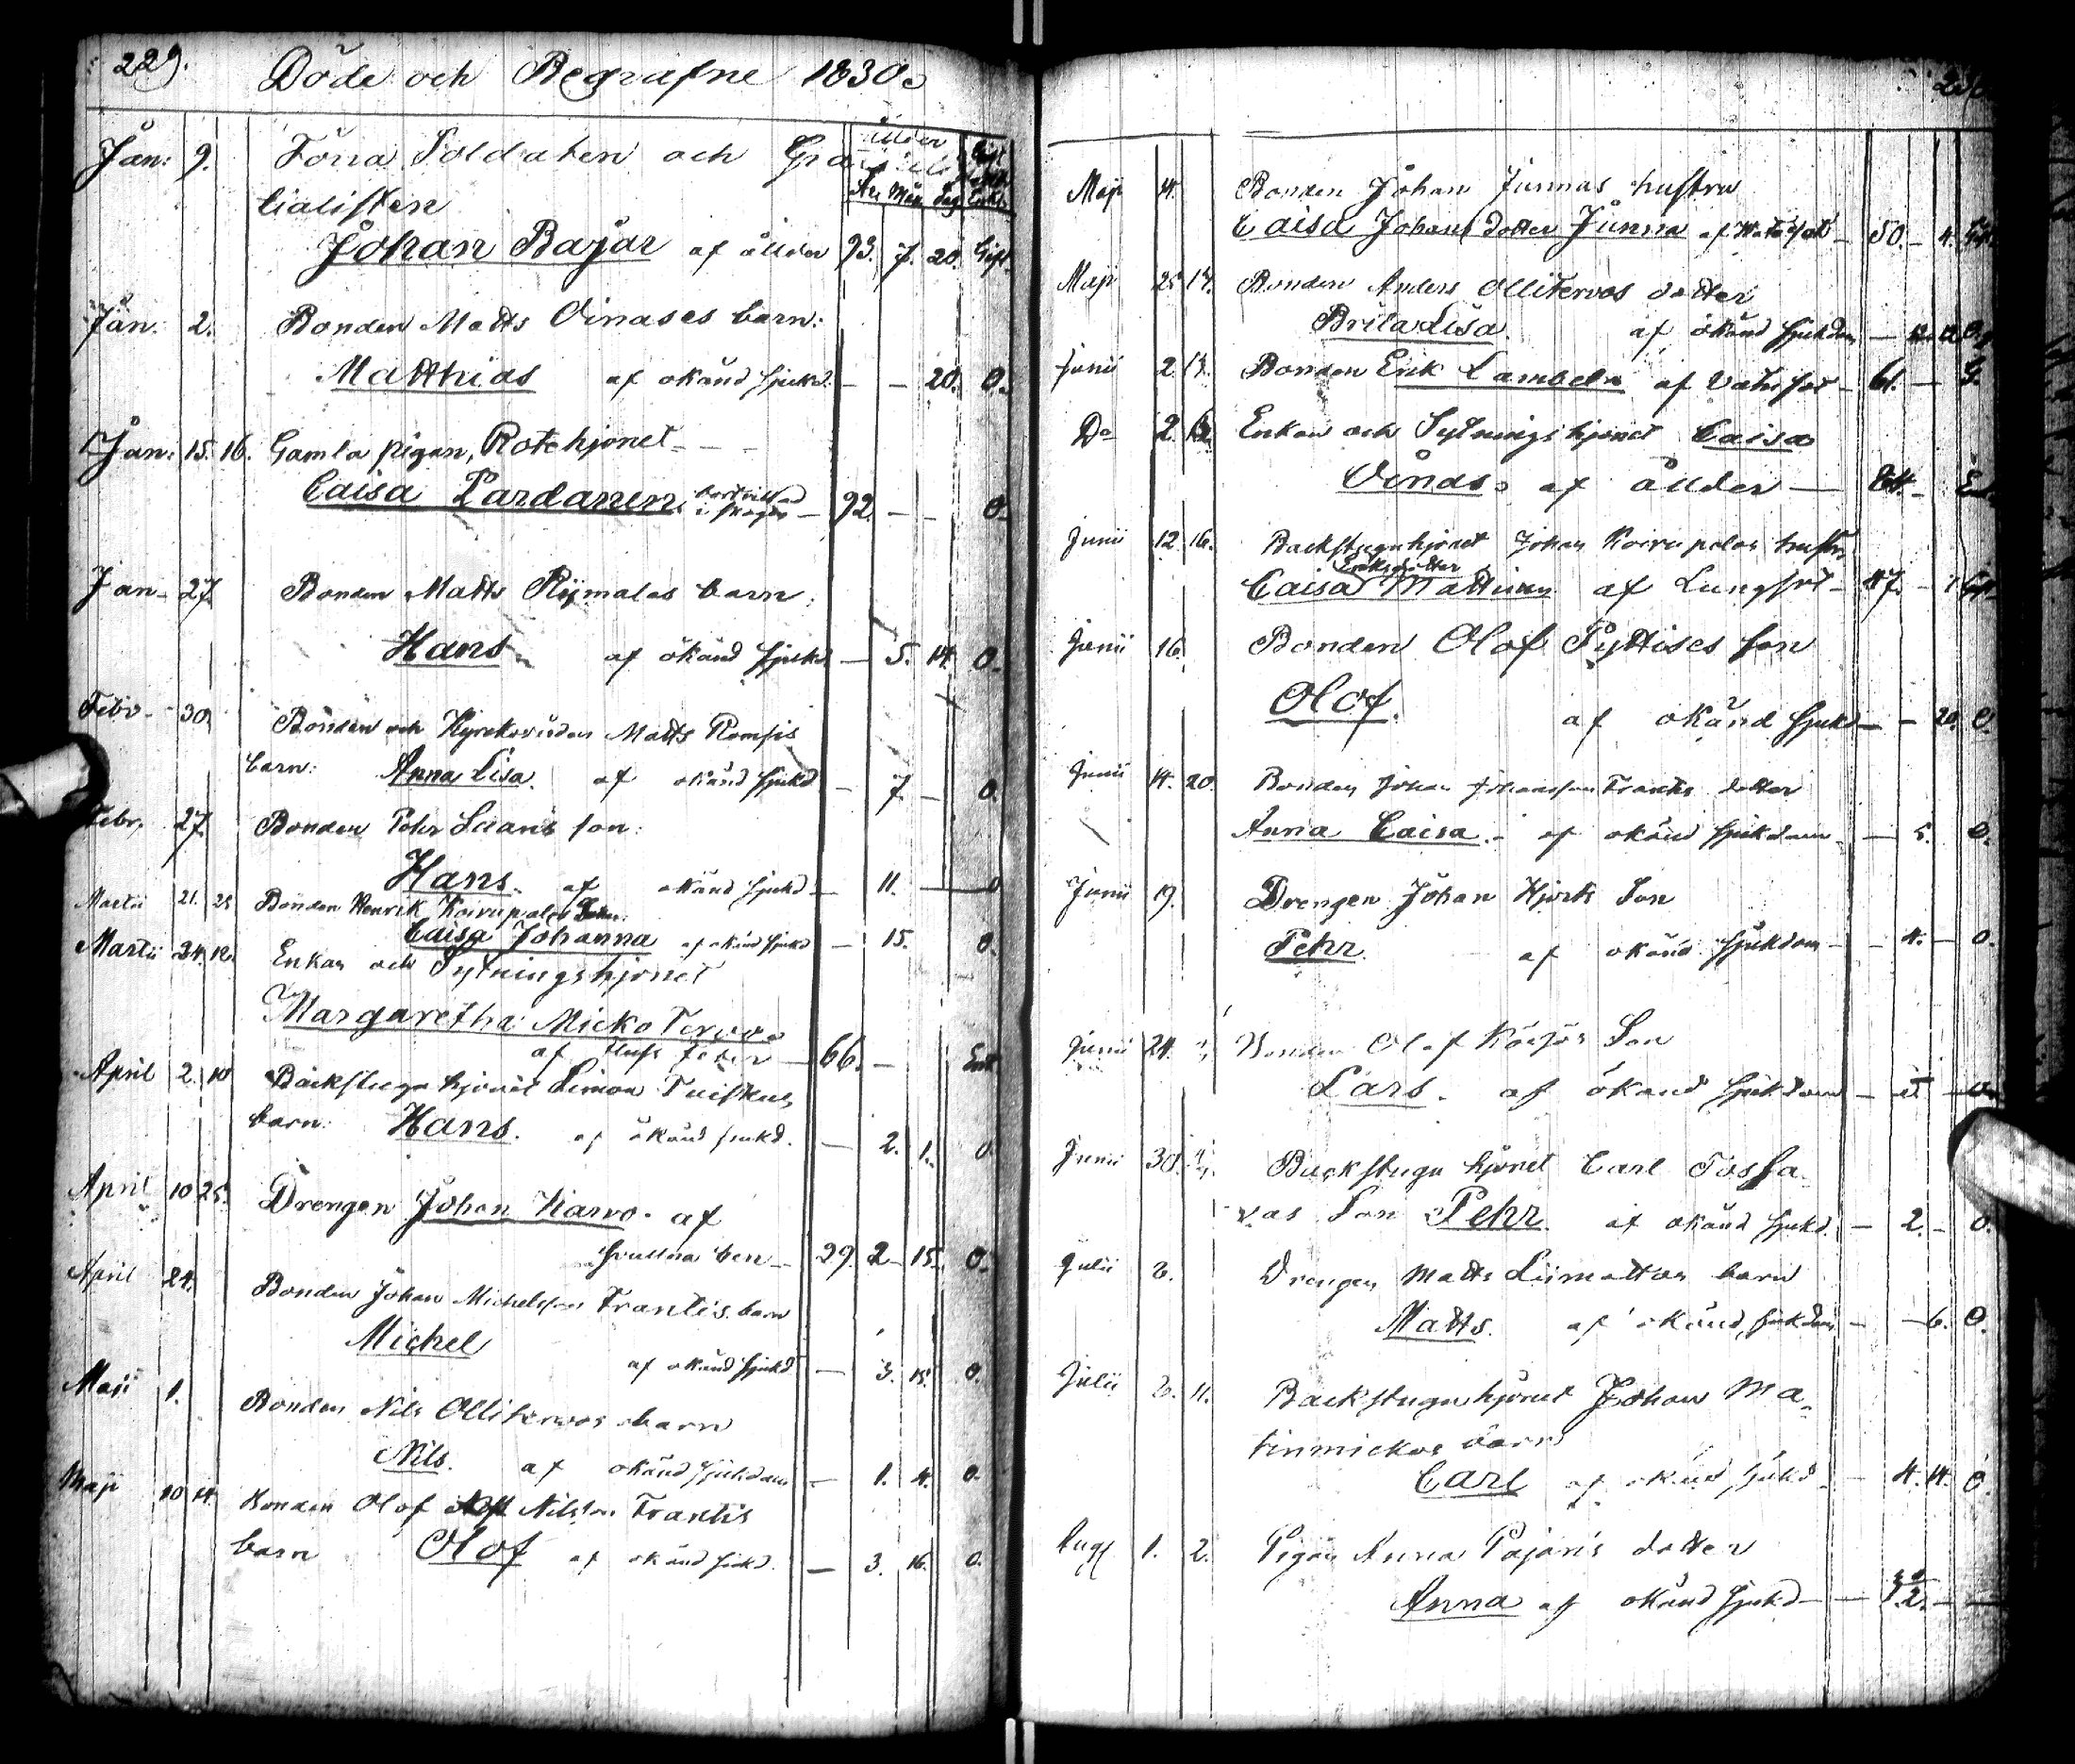 229.
Döde och Begrafne 1830.
Ålder
År Mån Dag
Jan: 9. Förra Soldaten och
Johan Bajar af ållder 93. 7. 20. Gift
Jan: 2. Bonden Matts Oinases barn:
Matthias af okänd sjukd. — — 20. O.
Jan: 15. 16. Gamla pigan, Rotehjonet
Caisa Pardanen 92. — — O.
Jan. 27 Bonden Matts Rijmalas barn:
Hans af okänd sjukd — 5. 14. O.
Febr. 30 Bonden och Kyrckovärden Matts Romsis
barn: Anna Lisa. af okänd sjukd — 7 — O.
Febr. 27. Bonden Pehr Laanis son:
Hans. af okänd sjukd — 11. — O
Martii 21. 25 Bonden Henrik Koirupalos
Caisa Johanna af okänd sjukd — 15. O.
Martii 24. Enkan och Sytningshjonet
Margaretha Micko Tervo.
af 66. — Enk
April 2. 10 Backstugu hjonet Simon Tuiskus
barn: Hans. af okänd sjukd. — 2. 1. O
April 10 25. Drengen Johan Karvo. af
svullna ben — 29. 2 15. O.
April 24. Bonden Johan Michelsson Frantis barn
Michel af okänd sjukd — 3. 15. O.
Maji 1. Bonden Nils Ollitervos barn
Nils. af okänd sjukdom — 1. 4. O.
Maji 10 14. Bonden Olof Nilsson Frantis
barn Olof af okänd sjukd. — 3. 16. O.
Maji 4. Bonden Johan Junnas hustru
Caisa Johans dotter Junna af — 50. — 4.
Maji 25 Bonden Anders Ollitervos dotter
Brita Lisa. af okänd sjukdom —
Junii 2 13. Bonden Erik Lambela af — 61. — G.
Do 2. Enkan och Sytningshjonet Caisa
Oinas. af ållder —
Junii 12. 16. Backstuguhjonet Johan Koirupalos hustru
Eriksdotter
Caisa Mattinen af Lungsot — 47. —
Junii 16. Bonden Olof Pyttises son
Olof. af okänd sjukd — — 20. O.
Junii 14. 20. Bonden Johan Johansson Frantis dotter
Anna Caisa. af okänd sjukdom — 5. O.
Junii 19. Drengen Johan Hjorts Son
Pehr. af okänd sjukdom — 4. — O.
Junii 24. Bonden Olof Son
Lars. af okänd sjukdom —
Junii 30. Backstugu hjonet Carl Tossa-
vas Son Pehr. af okänd sjukd. — 2. — O.
Julii Drengen Matts Liimattas barn
Matts. af okänd sjukdom — — 6. O.
Julii 11. Backstuguhjonet Johan Ma-
tinmickos barn
Carl af okänd sjukd. — 4. 14. O.
Aug 1. 2. Pigan Anna Pajaris dotter
Anna af okänd sjukd —